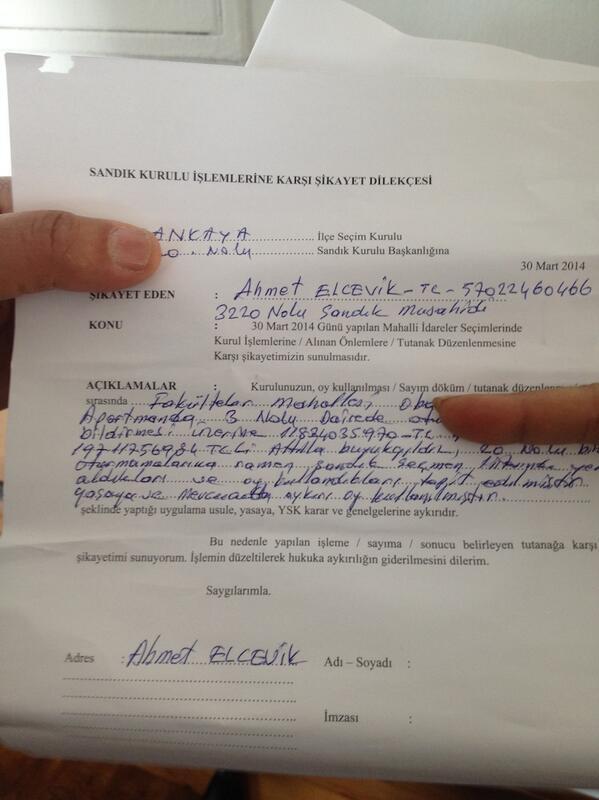 SANDIK KURULU İŞLEMLERİNE KARŞI ŞİKAYET DİLEKÇESİ
ANKAYA İlçe Seçim Kurulu
Nolu Sandık Kurulu Başkanlığına
30 Mart 2014
ŞİKAYET EDEN : Ahmet ELCEVİK - TC - 57022460466
3220 Nolu Sandık Musahidi
KONU : 30 Mart 2014 Günü yapılan Mahalli İdareler Seçimlerinde
Kurul İşlemlerine / Alınan Önlemlere / Tutanak Düzenlenmesine
Karşı şikayetimizin sunulmasıdır.
AÇIKLAMALAR : Kurulunuzun, oy kullanılması / Sayım döküm / tutanak
sırasında Fakülteler Mahallesi,
Apartmanda, 3 Nolu Dairede
bildirmesi üzerine TC
TCLİ Attila 20 Nolu
oturmamalarına ramen sandık seçmen
aldıkları ve oy kullandıkları tespit edilmiştir
yasaya ve aykırı oy kullanılmıştır
şeklinde yaptığı uygulama usule, yasaya, YSK karar ve genelgelerine aykırıdır.
Bu nedenle yapılan işleme / sayıma / sonucu belirleyen tutanağa karşı
şikayetimi sunuyorum. İşlemin düzeltilerek hukuka aykırılığın giderilmesini dilerim.
Saygılarımla.
Adres : Ahmet ELCEVİK Adı – Soyadı :
İmzası :